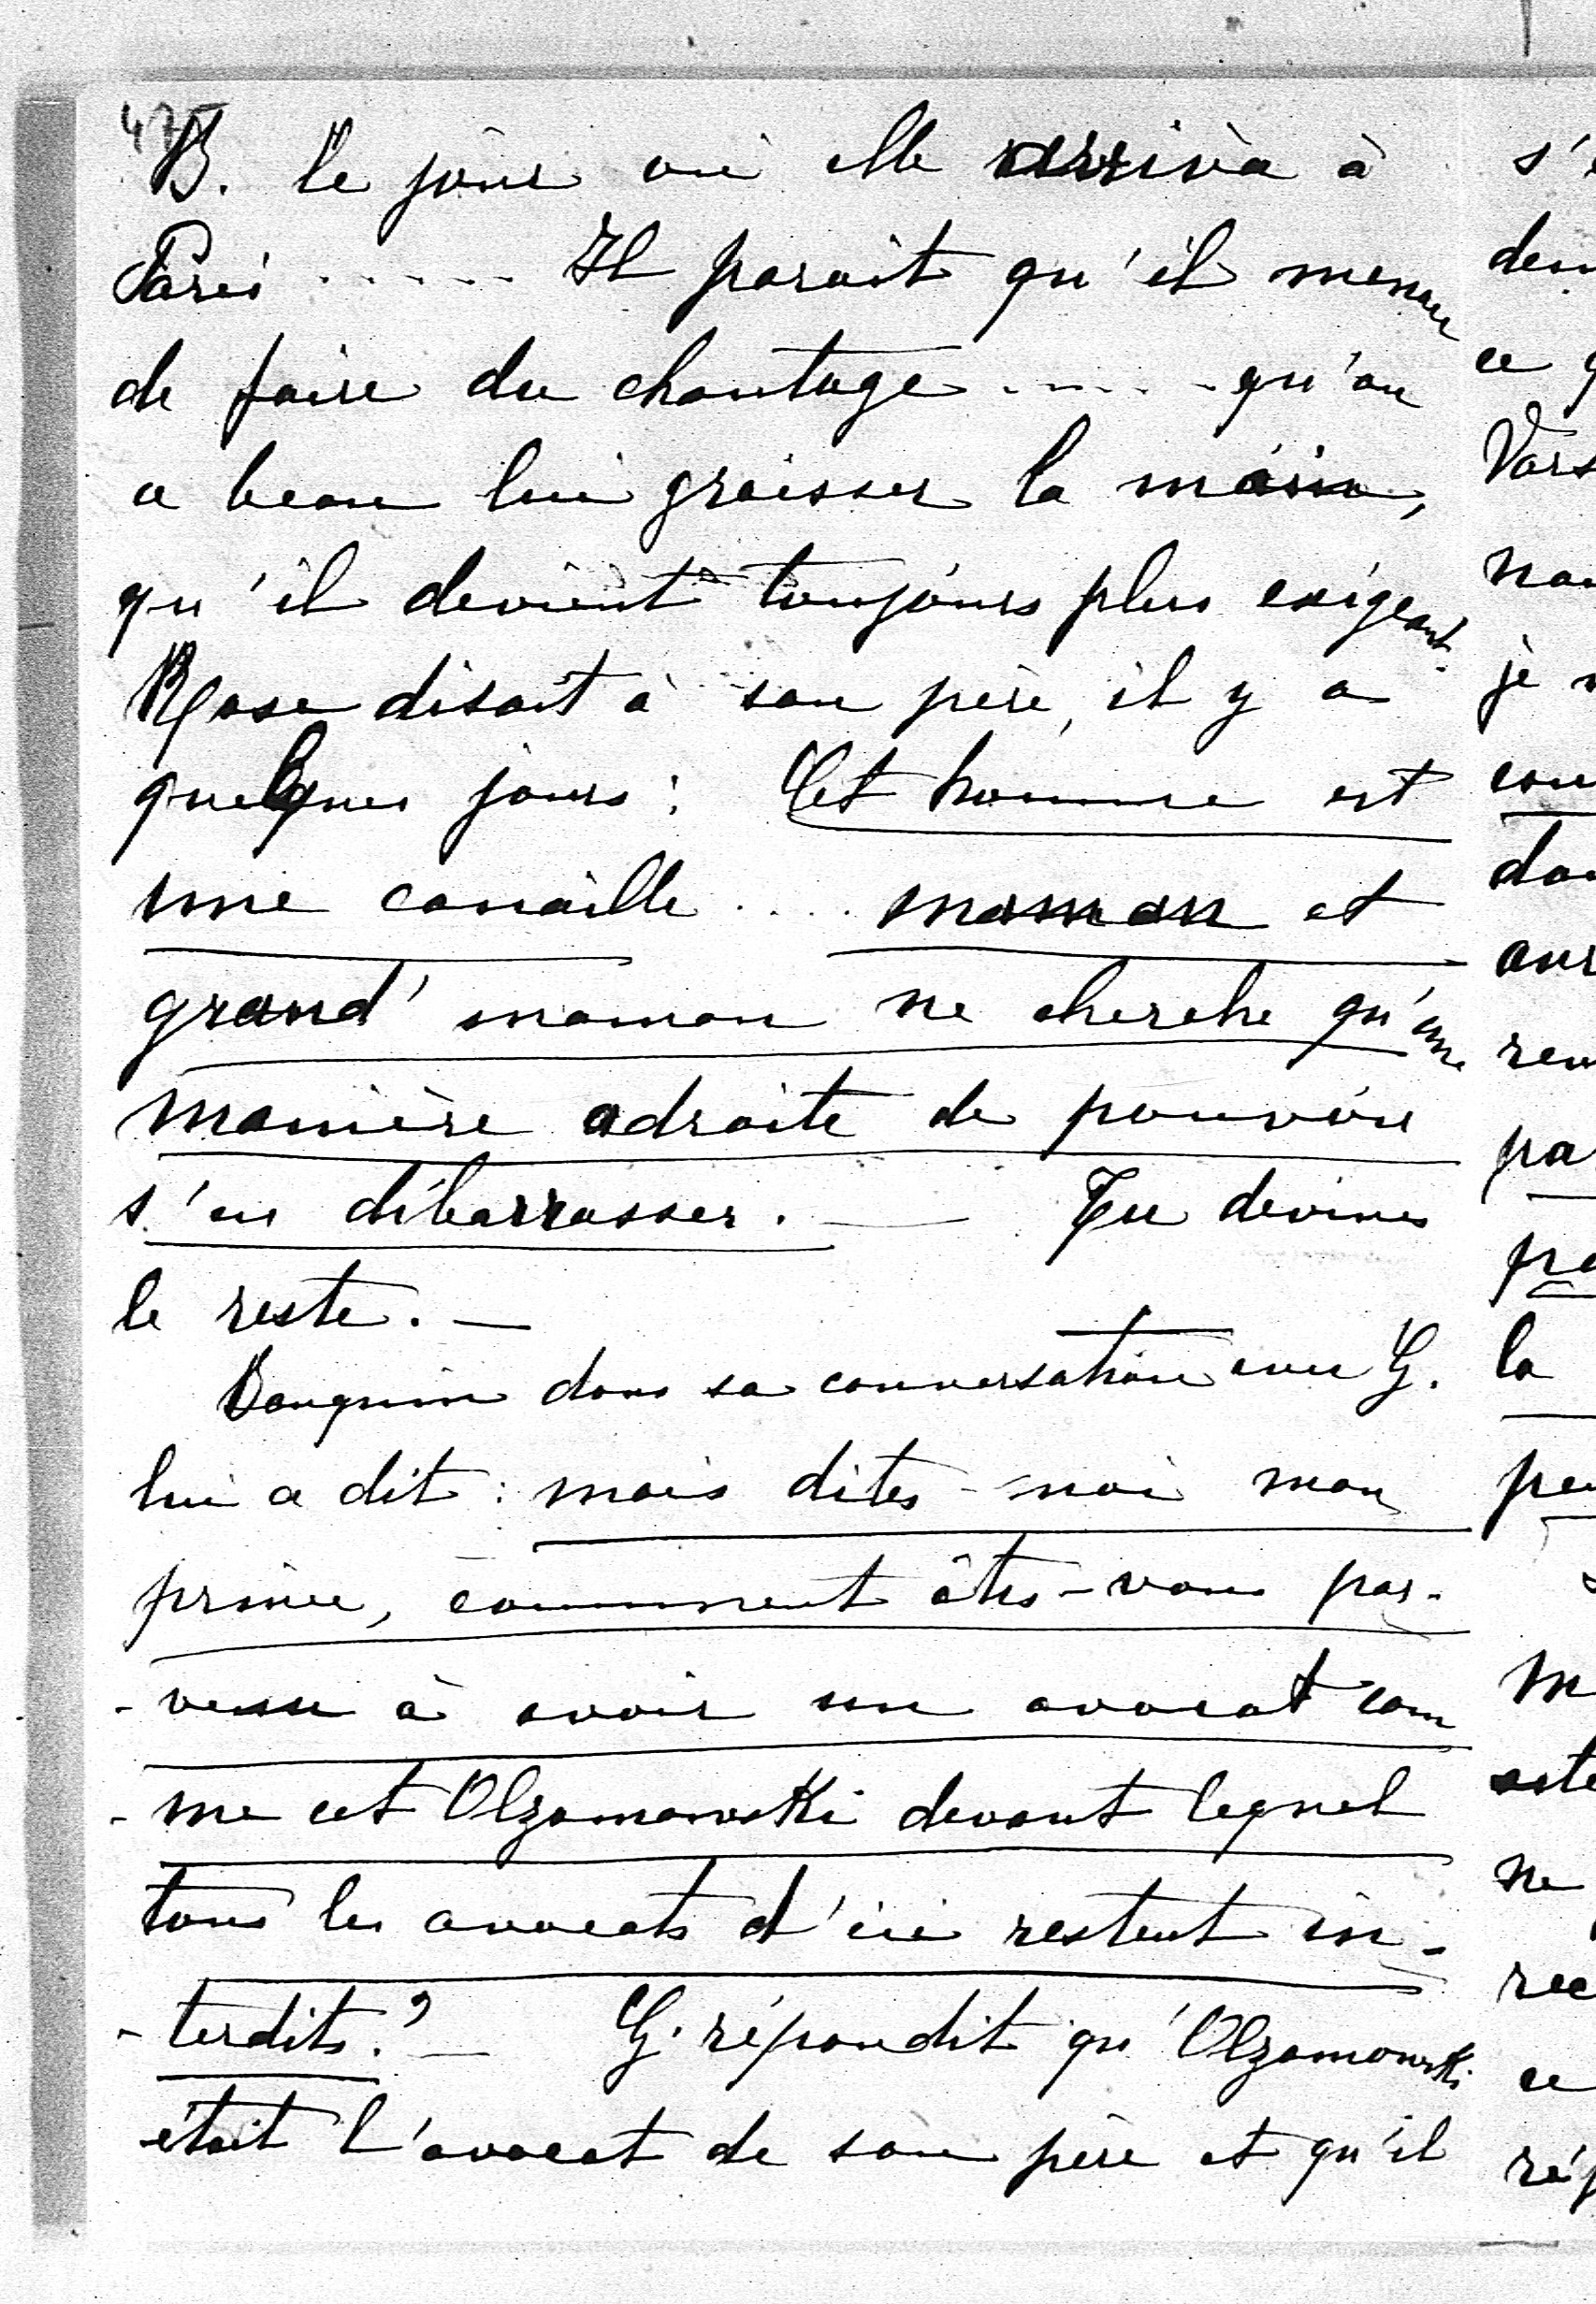 475
B. le jour où elle arriva à
Paris ..... Il parait qu'il menace
de faire du chantage ..... qu'on
a beau lui graisser la main,
qu'il devient toujours plus exigeant.
Rose disait à son père, il y a
quelques jours : Cet homme est
une canaille .... maman et
grand' maman ne cherche qu'une
manière adroite de pouvoir
s'en débarrasser. — Tu devines
le reste. —
dans sa conversation avec G.
lui a dit : mais dites-moi mon
prince, comment êtes-vous par-
-venu à avoir un avocat com
-me cet Olzamowski devant lequel
tous les avocats d'ici restent in-
-terdits? — G. répondit qu'Olzamowski
était l'avocat de son père et qu'il